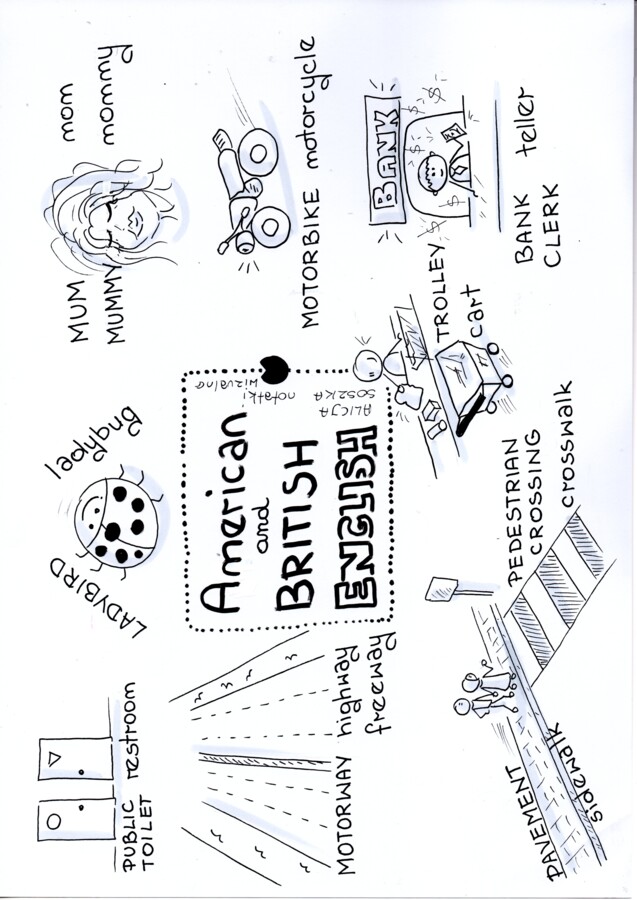 PUBLIC restroom
TOILET
LADYBIRD ladybug
MUM mom
MUMMY mommy
American
and
BRITISH
ENGLISH
ALICJA
SOSZKA
notatki
MOTORWAY highway
freeway
MOTORBIKE motorcycle
PAVEMENT
sidewalk
PEDESTRIAN
CROSSING
crosswalk
TROLLEY
cart
BANK
BANK teller
CLERK